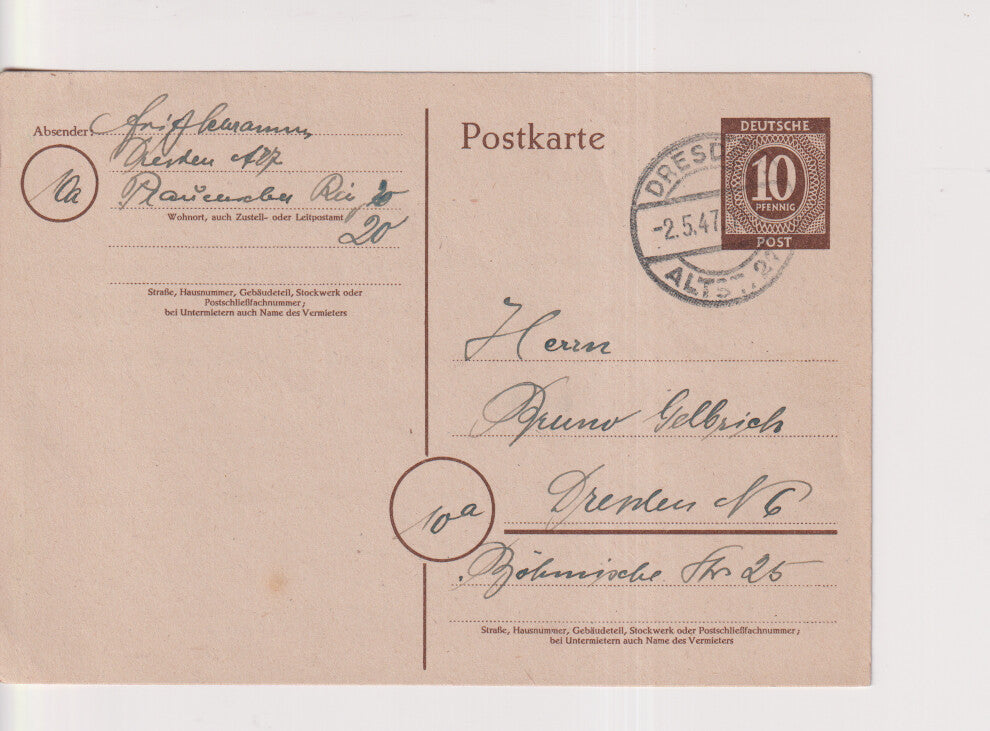 Absender:
Dresden A27
10a
Plauenscher Ring 20
Wohnort, auch Zustell- oder Leitpostamt
20
Straße, Hausnummer, Gebäudeteil, Stockwerk oder
Postschließfachnummer;
bei Untermietern auch Name des Vermieters
Postkarte
DEUTSCHE
10
PFENNIG
POST
DRESD
-2.5.47
ALTST. 27
Herrn
Bruno Gelbrich
Dresden N 6
10a
Böhmische Str 25
Straße, Hausnummer, Gebäudeteil, Stockwerk oder Postschließfachnummer;
bei Untermietern auch Name des Vermieters